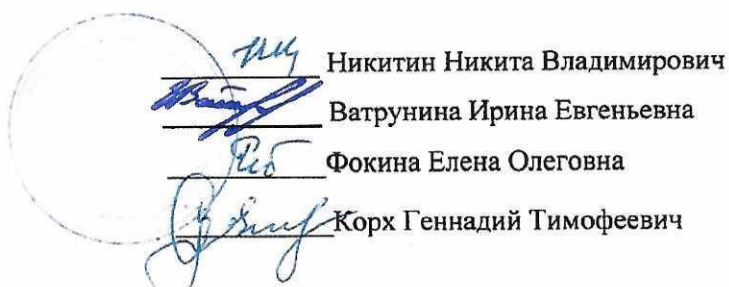 Никитин Никита Владимирович
Ватрунина Ирина Евгеньевна
Фокина Елена Олеговна
Корх Геннадий Тимофеевич